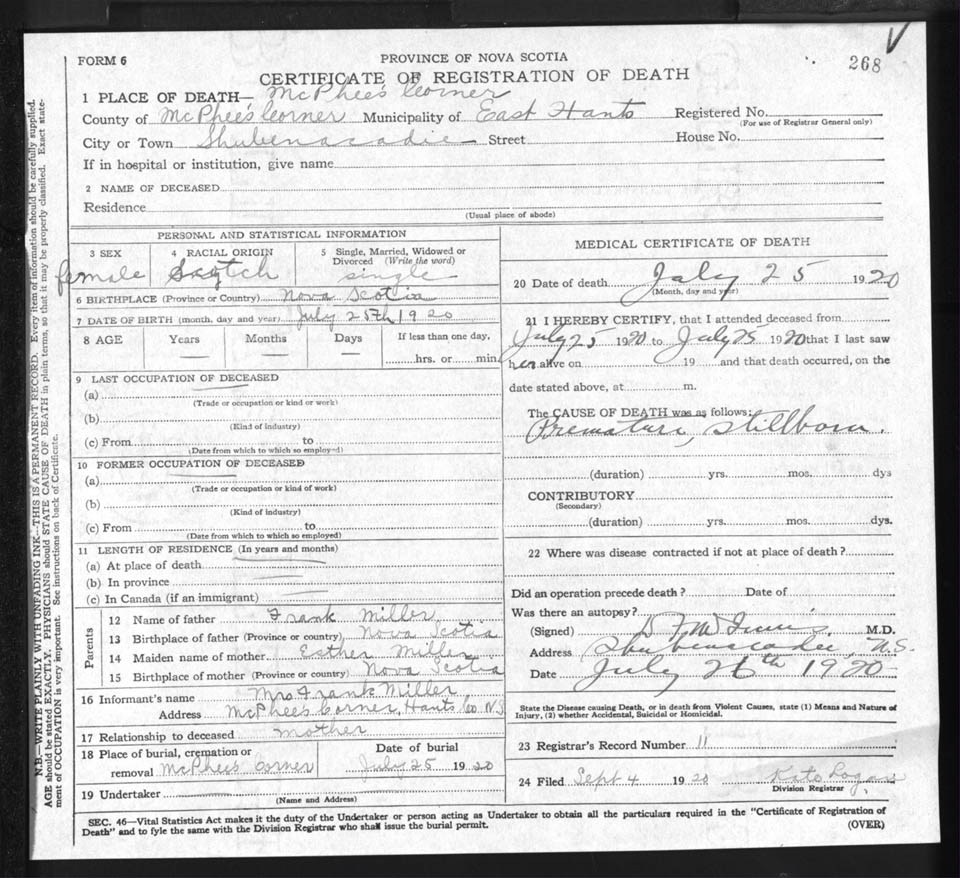 FORM 6
PROVINCE OF NOVA SCOTIA
268
CERTIFICATE OF REGISTRATION OF DEATH
1 PLACE OF DEATH— McPhee's Corner
County of McPhee's Corner Municipality of East Hants Registered No.
(For use of Registrar General only)
City or Town Shubenacadie Street House No.
If in hospital or institution, give name
2 NAME OF DECEASED
Residence
(Usual place of abode)
PERSONAL AND STATISTICAL INFORMATION
3 SEX
female
4 RACIAL ORIGIN
Scotch
5 Single, Married, Widowed or
Divorced (Write the word)
single
6 BIRTHPLACE (Province or Country) Nova Scotia
7 DATE OF BIRTH (month, day and year) July 25th 1920
8 AGE Years Months Days If less than one day,
hrs. or min.
9 LAST OCCUPATION OF DECEASED
(a)
(Trade or occupation or kind or work)
(b)
(Kind of industry)
(c) From to
(Date from which to which so employed)
10 FORMER OCCUPATION OF DECEASED
(a)
(Trade or occupation or kind of work)
(b)
(Kind of industry)
(c) From to
(Date from which to which so employed)
11 LENGTH OF RESIDENCE (In years and months)
(a) At place of death
(b) In province
(c) In Canada (if an immigrant)
Parents
12 Name of father Frank Miller
13 Birthplace of father (Province or country) Nova Scotia
14 Maiden name of mother Esther Miller
15 Birthplace of mother (Province or country) Nova Scotia
16 Informant's name Mrs Frank Miller
Address McPhee's Corner, Hants Co. N.S
17 Relationship to deceased mother
18 Place of burial, cremation or
removal McPhee's Corner
Date of burial
July 25 1920
19 Undertaker
(Name and Address)
MEDICAL CERTIFICATE OF DEATH
20 Date of death July 25 1920
(Month, day and year)
21 I HEREBY CERTIFY, that I attended deceased from
July 25 1920 to July 25 1920 that I last saw
her alive on 19 and that death occurred, on the
date stated above, at m.
The CAUSE OF DEATH was as follows:
Premature, stillborn.
(duration) yrs. mos. dys
CONTRIBUTORY
(Secondary)
(duration) yrs. mos. dys.
22 Where was disease contracted if not at place of death?
Did an operation precede death? Date of
Was there an autopsy?
(Signed) M.D.
Address Shubenacadie, N.S.
Date July 26th 1920
State the Disease causing Death, or in death from Violent Causes, state (1) Means and Nature of
Injury, (2) whether Accidental, Suicidal or Homicidal.
23 Registrar's Record Number 11
24 Filed Sept 4 1920 Kate Logan
Division Registrar
SEC. 46—Vital Statistics Act makes it the duty of the Undertaker or person acting as Undertaker to obtain all the particulars required in the "Certificate of Registration of
Death" and to fyle the same with the Division Registrar who shall issue the burial permit.
(OVER)
N.B.—WRITE PLAINLY WITH UNFADING INK—THIS IS A PERMANENT RECORD. Every item of information should be carefully supplied.
AGE should be stated EXACTLY. PHYSICIANS should STATE CAUSE OF DEATH in plain terms, so that it may be properly classified. Exact state-
ment of OCCUPATION is very important. See instructions on back of Certificate.